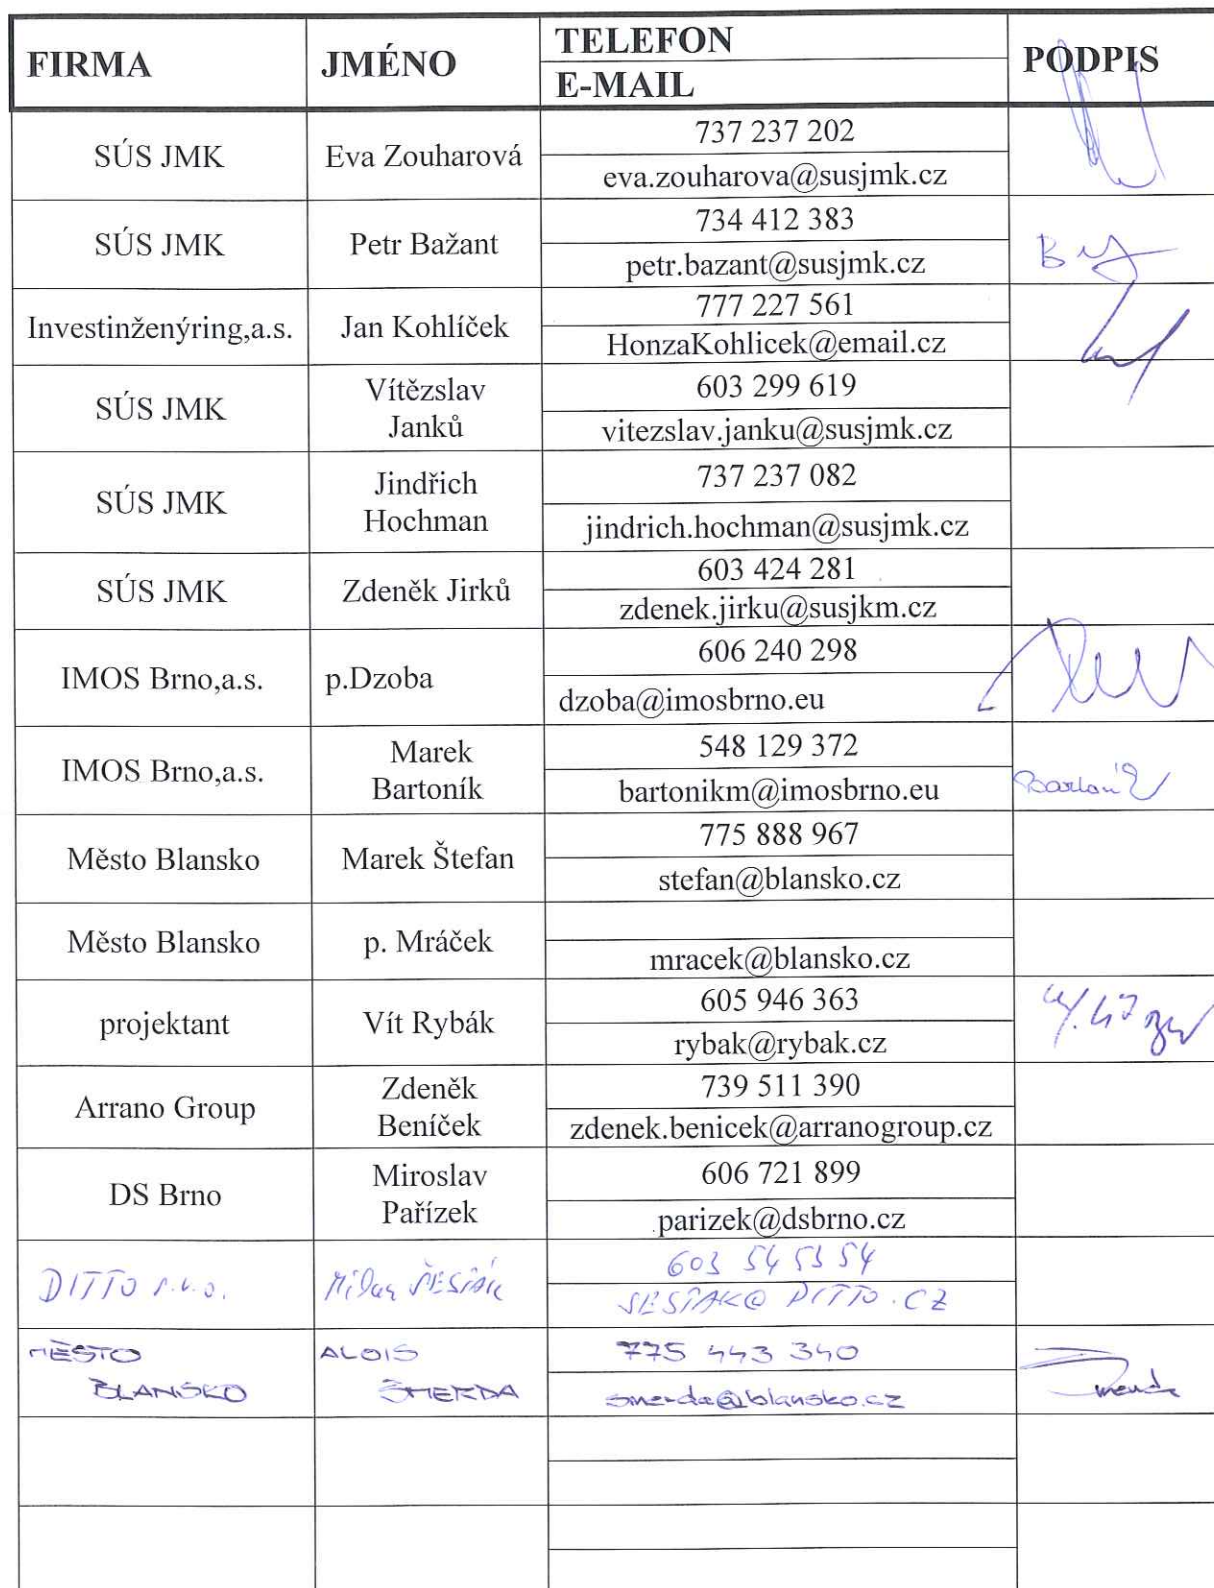 FIRMA JMÉNO TELEFON PODPIS
E-MAIL
SÚS JMK Eva Zouharová 737 237 202
eva.zouharova@susjmk.cz
SÚS JMK Petr Bažant 734 412 383
petr.bazant@susjmk.cz
Investinženýring,a.s. Jan Kohlíček 777 227 561
HonzaKohlicek@email.cz
SÚS JMK Vítězslav 603 299 619
Janků vitezslav.janku@susjmk.cz
SÚS JMK Jindřich 737 237 082
Hochman jindrich.hochman@susjmk.cz
SÚS JMK Zdeněk Jirků 603 424 281
zdenek.jirku@susjkm.cz
IMOS Brno,a.s. p.Dzoba 606 240 298
dzoba@imosbrno.eu
IMOS Brno,a.s. Marek 548 129 372
Bartoník bartonikm@imosbrno.eu Bartoník
Město Blansko Marek Štefan 775 888 967
stefan@blansko.cz
Město Blansko p. Mráček
mracek@blansko.cz
projektant Vít Rybák 605 946 363
rybak@rybak.cz
Arrano Group Zdeněk 739 511 390
Beníček zdenek.benicek@arranogroup.cz
DS Brno Miroslav 606 721 899
Pařízek parizek@dsbrno.cz
DITTO s.r.o. Milan ŠESTÁK 603 54 53 54
SESTAK@DITTO.CZ
MĚSTO ALOIS 775 443 340
BLANSKO ŠMERDA smerda@blansko.cz